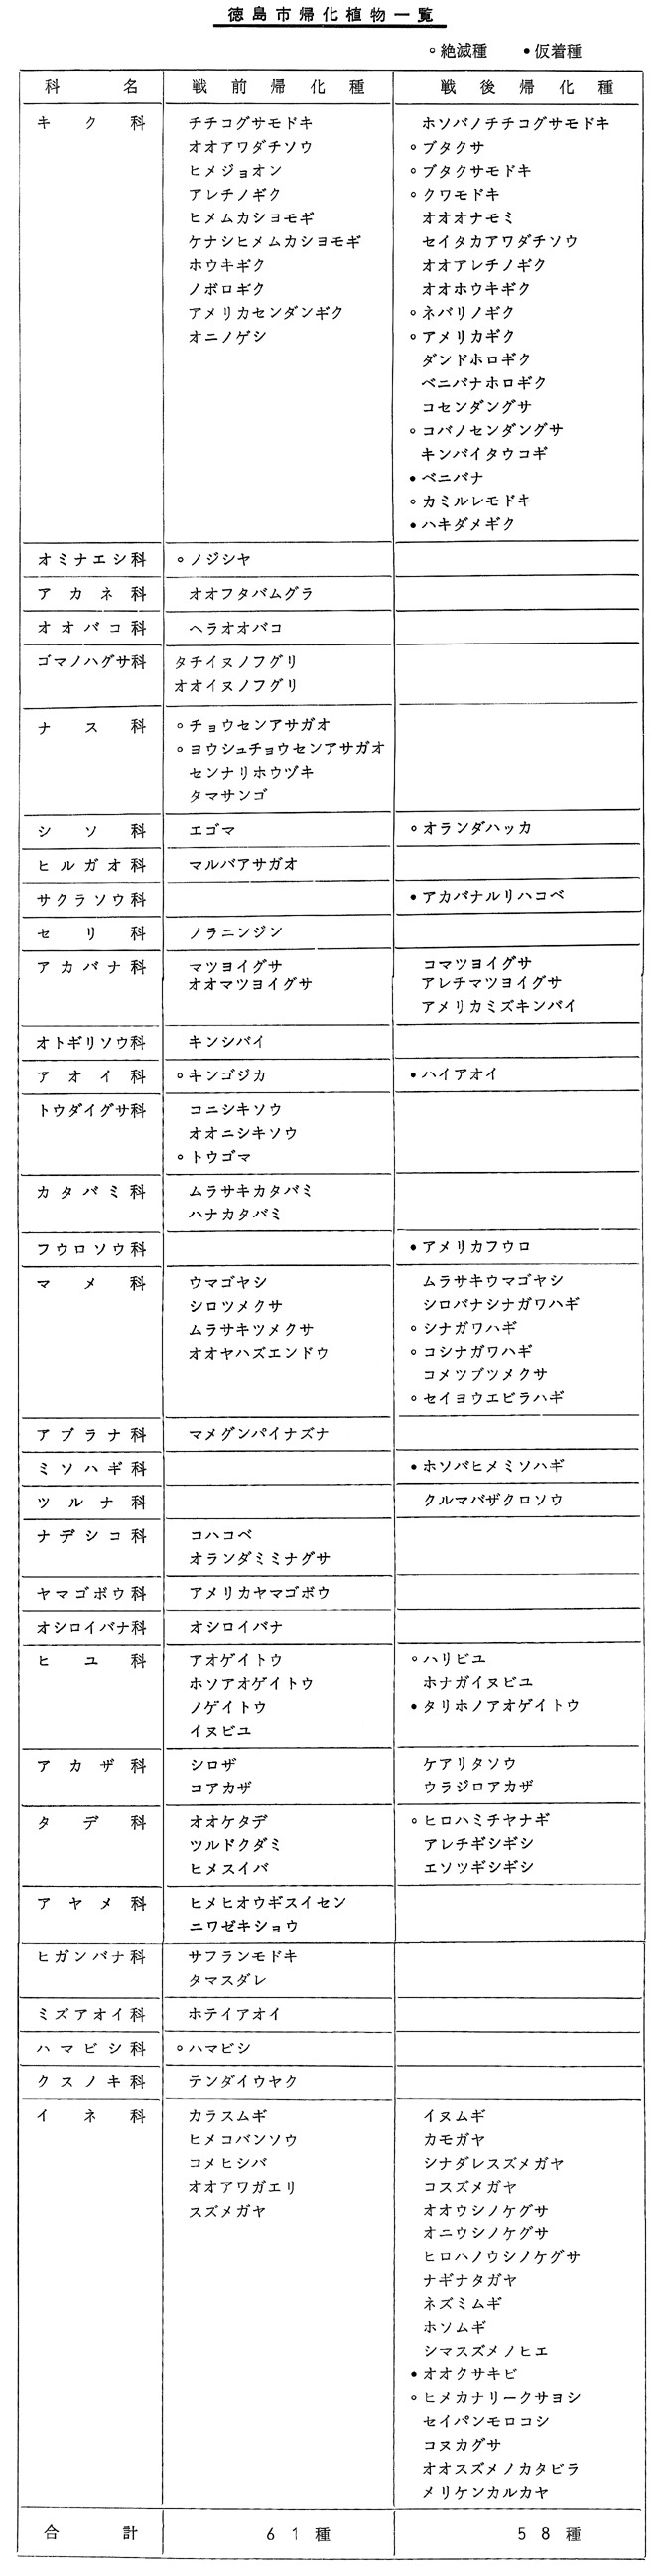 徳島市帰化植物一覧
○絶滅種 ●仮着種
科名 戦前帰化種 戦後帰化種
キク科 チチコグサモドキ ホソバノチチコグサモドキ
オオアワダチソウ ○ブタクサ
ヒメジョオン ○ブタクサモドキ
アレチノギク ○クワモドキ
ヒメムカシヨモギ オオオナモミ
ケナシヒメムカシヨモギ セイタカアワダチソウ
ホウキギク オオアレチノギク
ノボロギク オオホウキギク
アメリカセンダンギク ○ネバリノギク
オニノゲシ ○アメリカギク
ダンドホロギク
ベニバナホロギク
コセンダングサ
○コバノセンダングサ
キンバイタウコギ
●ベニバナ
○カミルレモドキ
●ハキダメギク
オミナエシ科 ○ノジシヤ
アカネ科 オオフタバムグラ
オオバコ科 ヘラオオバコ
ゴマノハグサ科 タチイヌノフグリ
オオイヌノフグリ
ナス科 ○チョウセンアサガオ
○ヨウシュチョウセンアサガオ
センナリホウヅキ
タマサンゴ
シソ科 エゴマ ○オランダハッカ
ヒルガオ科 マルバアサガオ
サクラソウ科 ●アカバナルリハコベ
セリ科 ノラニンジン
アカバナ科 マツヨイグサ コマツヨイグサ
オオマツヨイグサ アレチマツヨイグサ
アメリカミズキンバイ
オトギリソウ科 キンシバイ
アオイ科 ○キンゴジカ ●ハイアオイ
トウダイグサ科 コニシキソウ
オオニシキソウ
○トウゴマ
カタバミ科 ムラサキカタバミ
ハナカタバミ
フウロソウ科 ●アメリカフウロ
マメ科 ウマゴヤシ ムラサキウマゴヤシ
シロツメクサ シロバナシナガワハギ
ムラサキツメクサ ○シナガワハギ
オオヤハズエンドウ ○コシナガワハギ
コメツブツメクサ
○セイヨウエビラハギ
アブラナ科 マメグンバイナズナ
ミソハギ科 ●ホソバヒメミソハギ
ツルナ科 クルマバザクロソウ
ナデシコ科 コハコベ
オランダミミナグサ
ヤマゴボウ科 アメリカヤマゴボウ
オシロイバナ科 オシロイバナ
ヒユ科 アオゲイトウ ○ハリビユ
ホソアオゲイトウ ホナガイヌビユ
ノゲイトウ ●タリホノアオゲイトウ
イヌビユ
アカザ科 シロザ ケアリタソウ
コアカザ ウラジロアカザ
タデ科 オオケタデ ○ヒロハミチヤナギ
ツルドクダミ アレチギシギシ
ヒメスイバ エソツギシギシ
アヤメ科 ヒメヒオウギスイセン
ニワゼキショウ
ヒガンバナ科 サフランモドキ
タマスダレ
ミズアオイ科 ホテイアオイ
ハマビシ科 ○ハマビシ
クスノキ科 テンダイウヤク
イネ科 カラスムギ イヌムギ
ヒメコバンソウ カモガヤ
コメヒシバ シナダレスズメガヤ
オオアワガエリ コスズメガヤ
スズメガヤ オオウシノケグサ
オニウシノケグサ
ヒロハノウシノケグサ
ナギナタガヤ
ネズミムギ
ホソムギ
シマスズメノヒエ
●オオクサキビ
○ヒメカナリークサヨシ
セイバンモロコシ
コヌカグサ
オオスズメノカタビラ
メリケンカルカヤ
合計 61種 58種